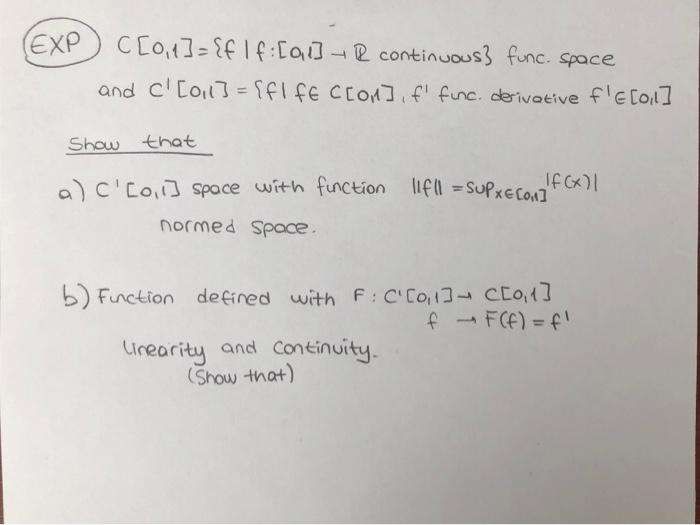 EXP C[0,1]={f | f:[0,1] → ℝ continuous} func. space
and C'[0,1] = {f | f ∈ C[0,1], f' func. derivative f' ∈ [0,1]
Show that
a) C'[0,1] space with function ||f|| = sup x∈[0,1] |f(x)|
normed space.
b) Function defined with F : C'[0,1] → C[0,1]
f → F(f) = f'
linearity and continuity.
(Show that)